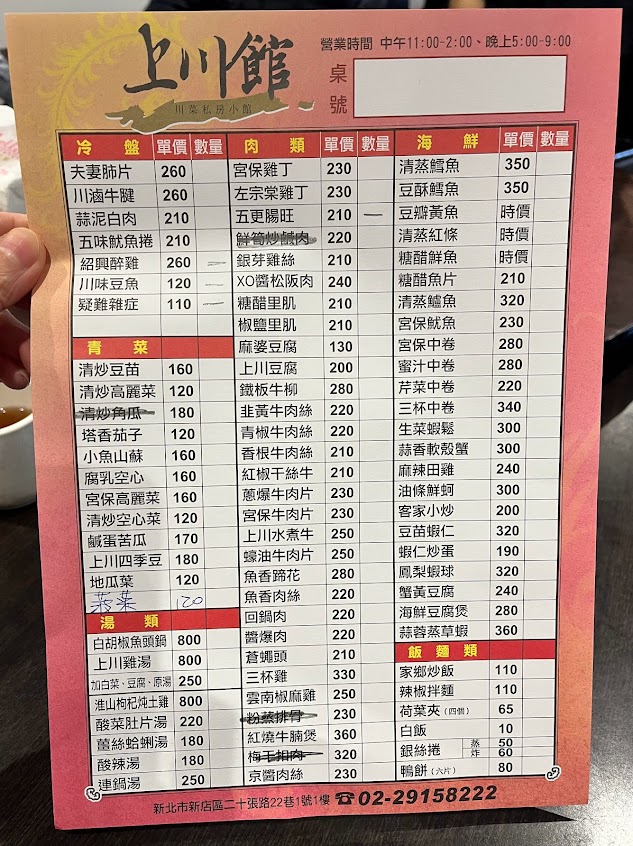 上川館
川菜私房小館
營業時間 中午11:00-2:00、晚上5:00-9:00
桌號
冷盤 單價 數量
夫妻肺片 260
川滷牛腱 260
蒜泥白肉 210
五味魷魚捲 210
紹興醉雞 260 一
川味豆魚 120 一
疑難雜症 110 一
青菜
清炒豆苗 160
清炒高麗菜 120
清炒角瓜 180
塔香茄子 120
小魚山蘇 160
腐乳空心 160
宮保高麗菜 160
清炒空心菜 120
鹹蛋苦瓜 170
上川四季豆 180
地瓜葉 120
菠菜 120
湯類
白胡椒魚頭鍋 800
上川雞湯 800
加白菜、豆腐、原湯 250
淮山枸杞炖土雞 800
酸菜肚片湯 220
薑絲蛤蜊湯 180
酸辣湯 180
連鍋湯 250
肉類 單價 數量
宮保雞丁 230
左宗棠雞丁 230
五更腸旺 210 一
鮮筍炒鹹肉 220
銀芽雞絲 210
XO醬松阪肉 240
糖醋里肌 210
椒鹽里肌 210
麻婆豆腐 130
上川豆腐 200
鐵板牛柳 280
韭黃牛肉絲 220
青椒牛肉絲 220
香根牛肉絲 210
紅椒干絲牛 210
蔥爆牛肉片 230
宮保牛肉片 230
上川水煮牛 250
蠔油牛肉片 250
魚香蹄花 280
魚香肉絲 220
回鍋肉 220
醬爆肉 220
蒼蠅頭 210
三杯雞 330
雲南椒麻雞 250
粉蒸排骨 230
紅燒牛腩煲 360
梅干扣肉 320
京醬肉絲 230
海鮮 單價 數量
清蒸鱈魚 350
豆酥鱈魚 350
豆瓣黃魚 時價
清蒸紅條 時價
糖醋鮮魚 時價
糖醋魚片 210
清蒸鱸魚 320
宮保魷魚 230
宮保中卷 280
蜜汁中卷 280
芹菜中卷 220
三杯中卷 340
生菜蝦鬆 300
蒜香軟殼蟹 300
麻辣田雞 240
油條鮮蚵 300
客家小炒 200
豆苗蝦仁 320
蝦仁炒蛋 190
鳳梨蝦球 320
蟹黃豆腐 240
海鮮豆腐煲 280
蒜蓉蒸草蝦 360
飯麵類
家鄉炒飯 110
辣椒拌麵 110
荷葉夾(四個) 65
白飯 10
銀絲捲 蒸 50
炸 60
鴨餅(六片) 80
新北市新店區二十張路22巷1號1樓 ☎02-29158222